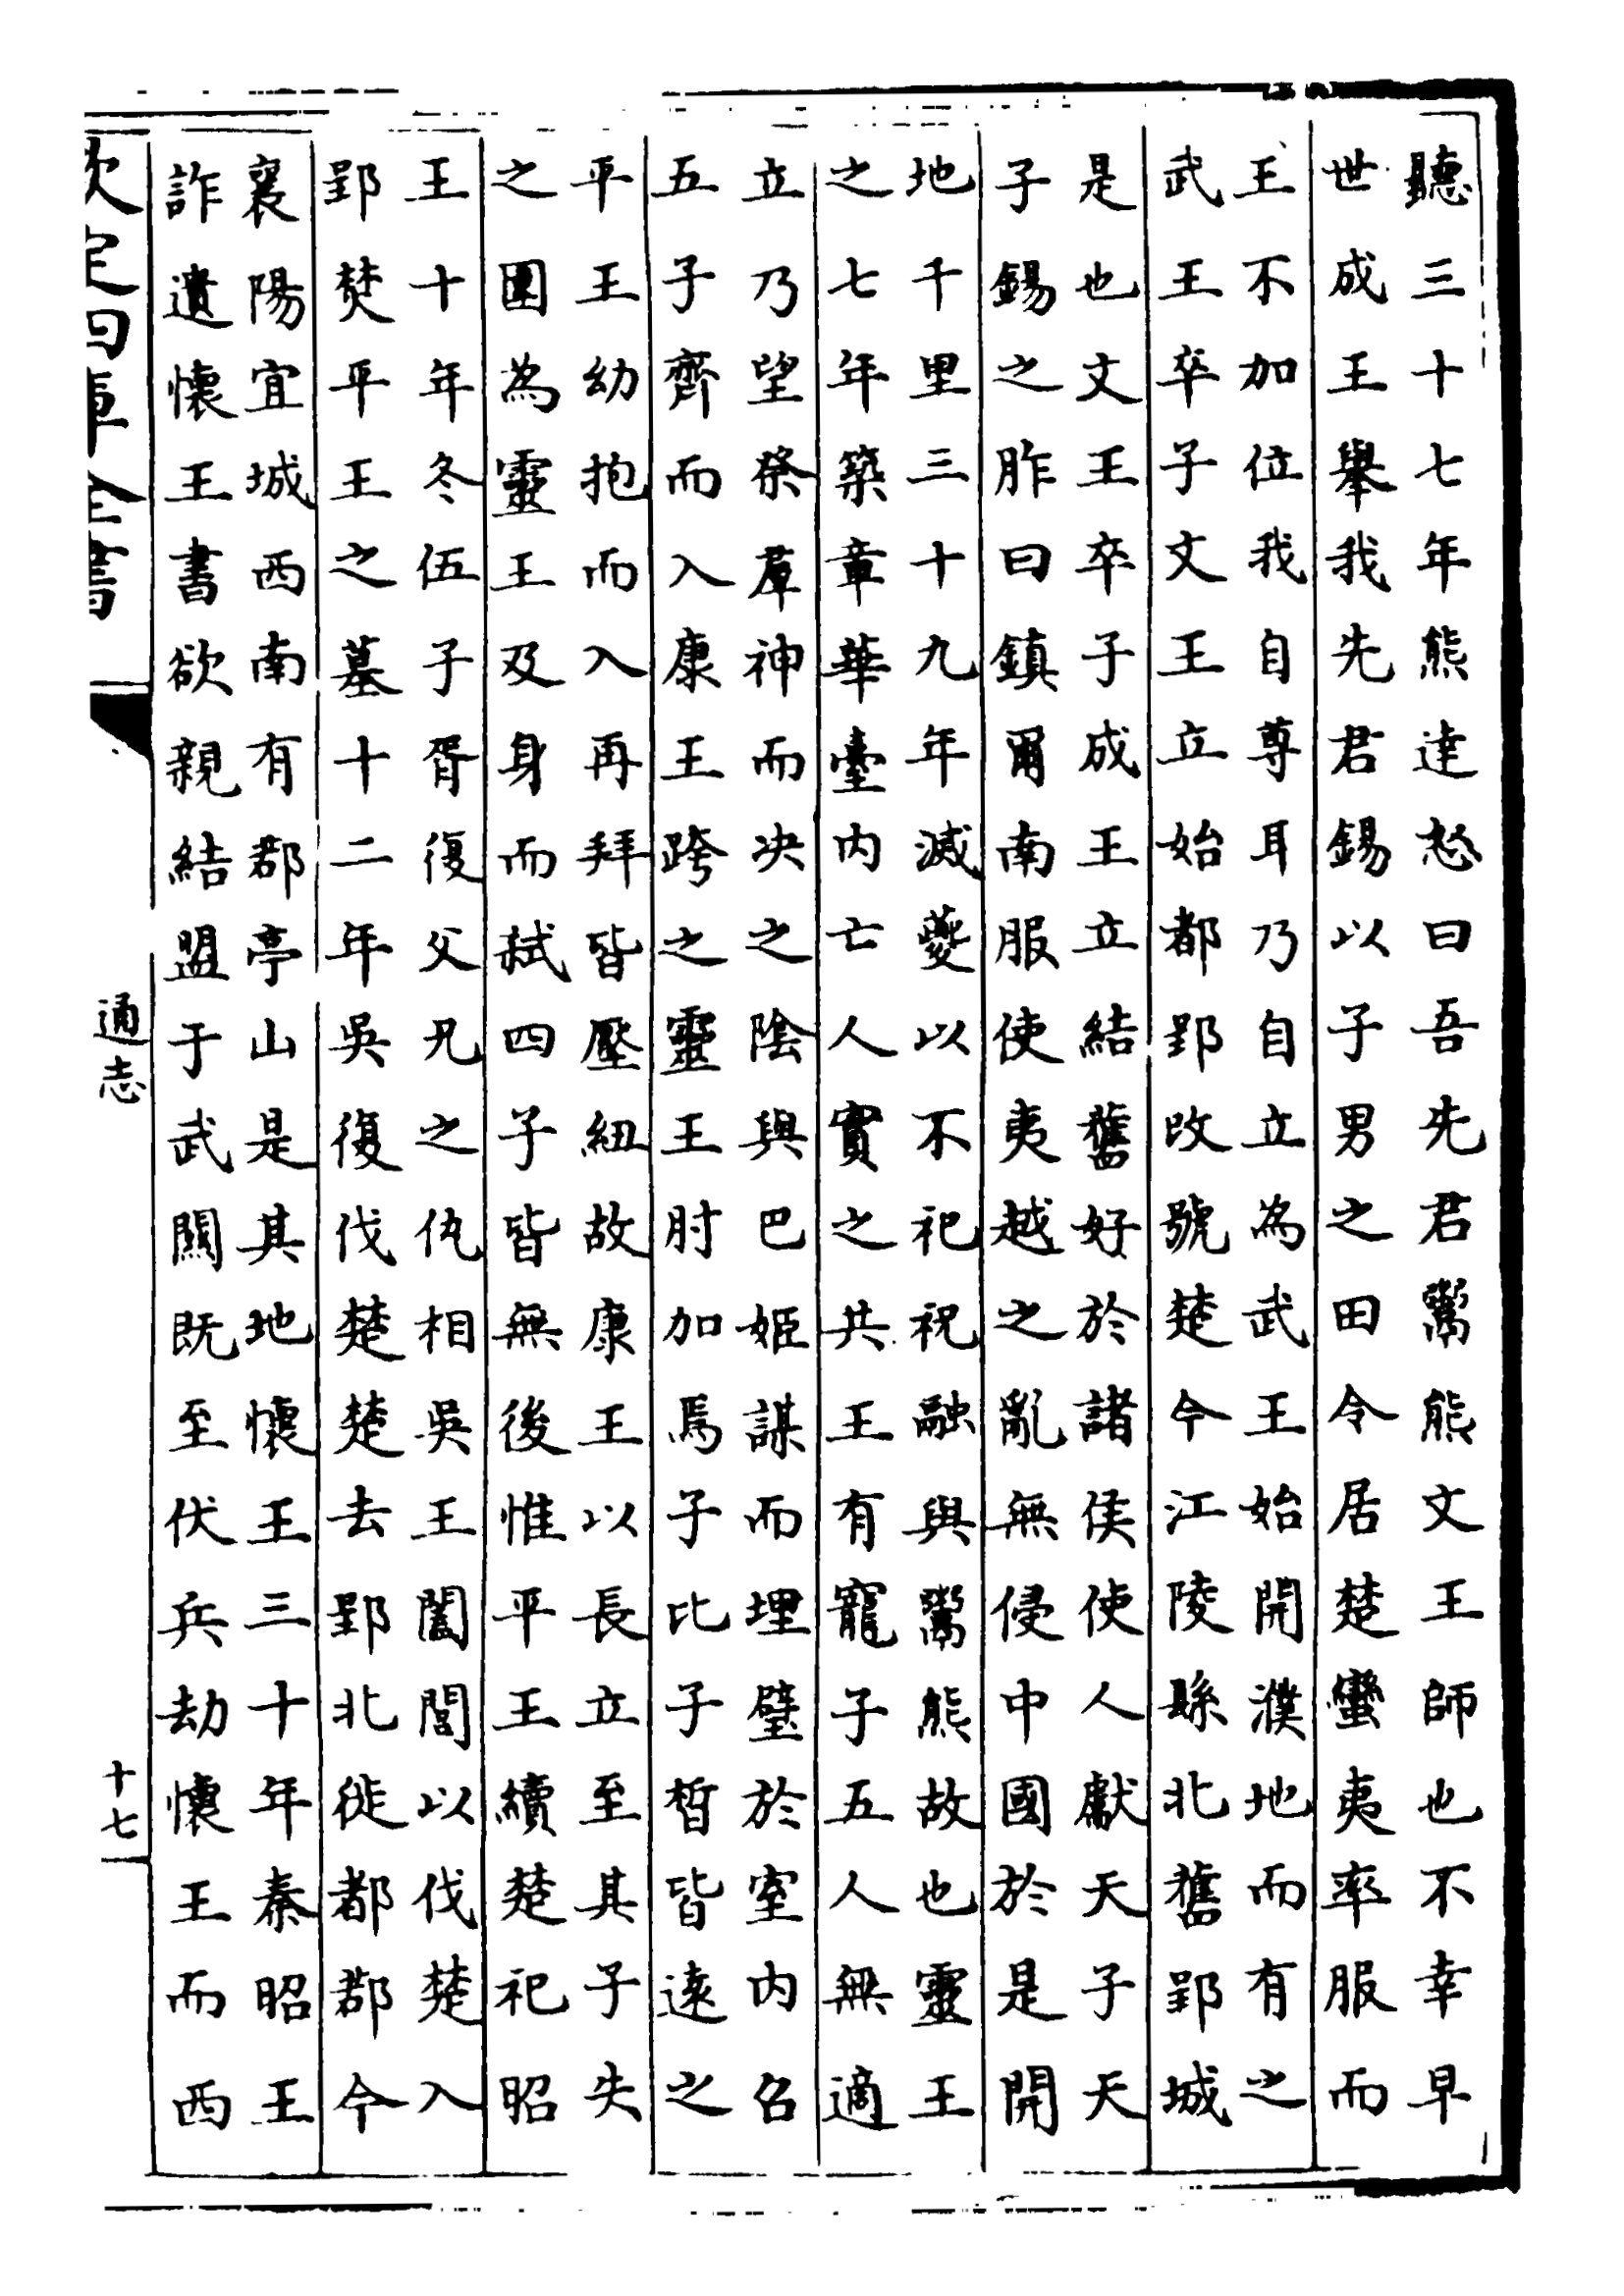 聽三十七年熊達怒曰吾先君鬻熊文王師也不幸早
世成王舉我先君錫以子男之田令居楚蠻夷率服而
王不加位我自尊耳乃自立為武王始開濮地而有之
武王卒子文王立始都郢改號楚今江陵縣北舊郢城
是也文王卒子成王立結舊好於諸侯使人獻天子天
子錫之胙曰鎮爾南服使夷越之亂無侵中國於是開
地千里三十九年滅夔以不祀祝融與鬻熊故也靈王
之七年築章華臺内亡人實之共王有寵子五人無適
立乃望祭羣神而决之陰與巴姬謀而埋璧於室内召
五子齊而入康王跨之靈王肘加焉子比子晳皆逺之
平王幼抱而入再拜皆壓紐故康王以長立至其子失
之圍為靈王及身而弑四子皆無後惟平王續楚祀昭
王十年冬伍子胥復父兄之仇相吳王闔閭以伐楚入
郢焚平王之墓十二年吳復伐楚楚去郢北徙都鄀今
襄陽宜城西南有鄀亭山是其地懷王三十年秦昭王
詐遺懷王書欲親結盟于武關既至伏兵劫懷王而西
欽定四庫全書
通志
十七